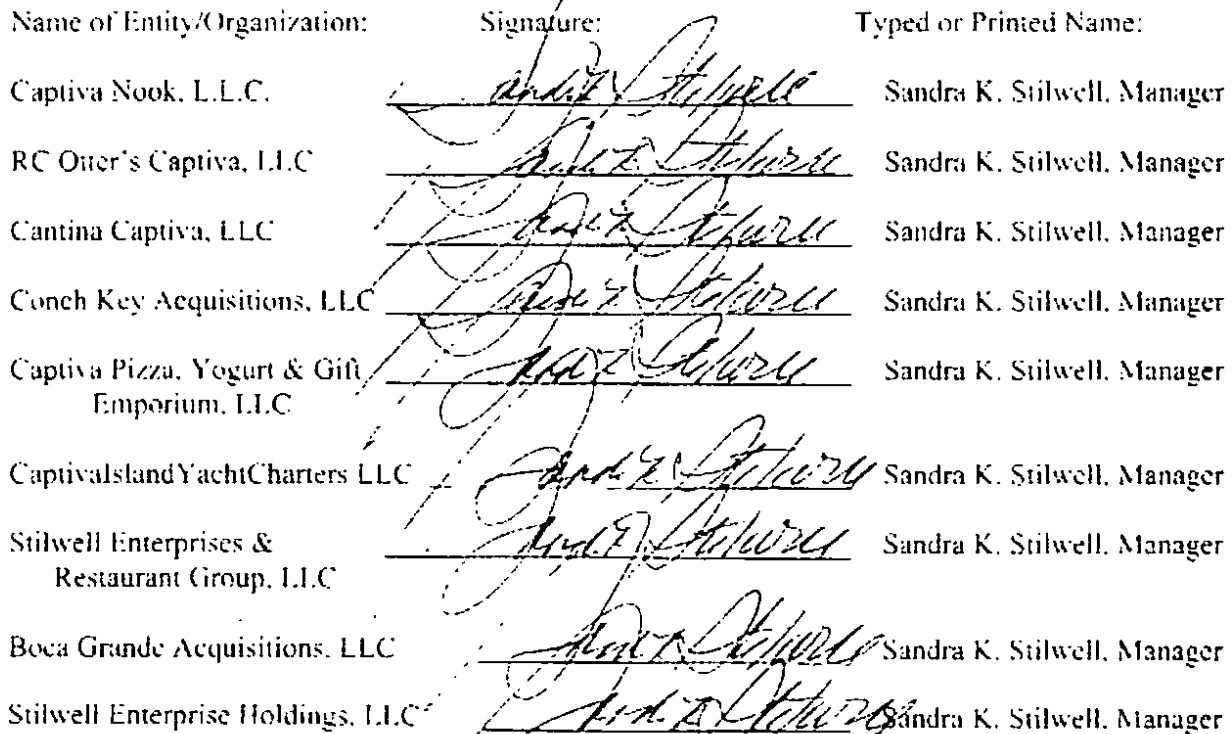 Name of Entity/Organization: Signature: Typed or Printed Name:
Captiva Nook, L.L.C. Sandra K. Stilwell Sandra K. Stilwell, Manager
RC Otter's Captiva, LLC Sandra K. Stilwell Sandra K. Stilwell, Manager
Cantina Captiva, LLC Sandra K. Stilwell Sandra K. Stilwell, Manager
Conch Key Acquisitions, LLC Sandra K. Stilwell Sandra K. Stilwell, Manager
Captiva Pizza, Yogurt & Gift Sandra K. Stilwell Sandra K. Stilwell, Manager
Emporium, LLC
CaptivaIslandYachtCharters LLC Sandra K. Stilwell Sandra K. Stilwell, Manager
Stilwell Enterprises & Sandra K. Stilwell Sandra K. Stilwell, Manager
Restaurant Group, LLC
Boca Grande Acquisitions, LLC Sandra K. Stilwell Sandra K. Stilwell, Manager
Stilwell Enterprise Holdings, LLC Sandra K. Stilwell Sandra K. Stilwell, Manager